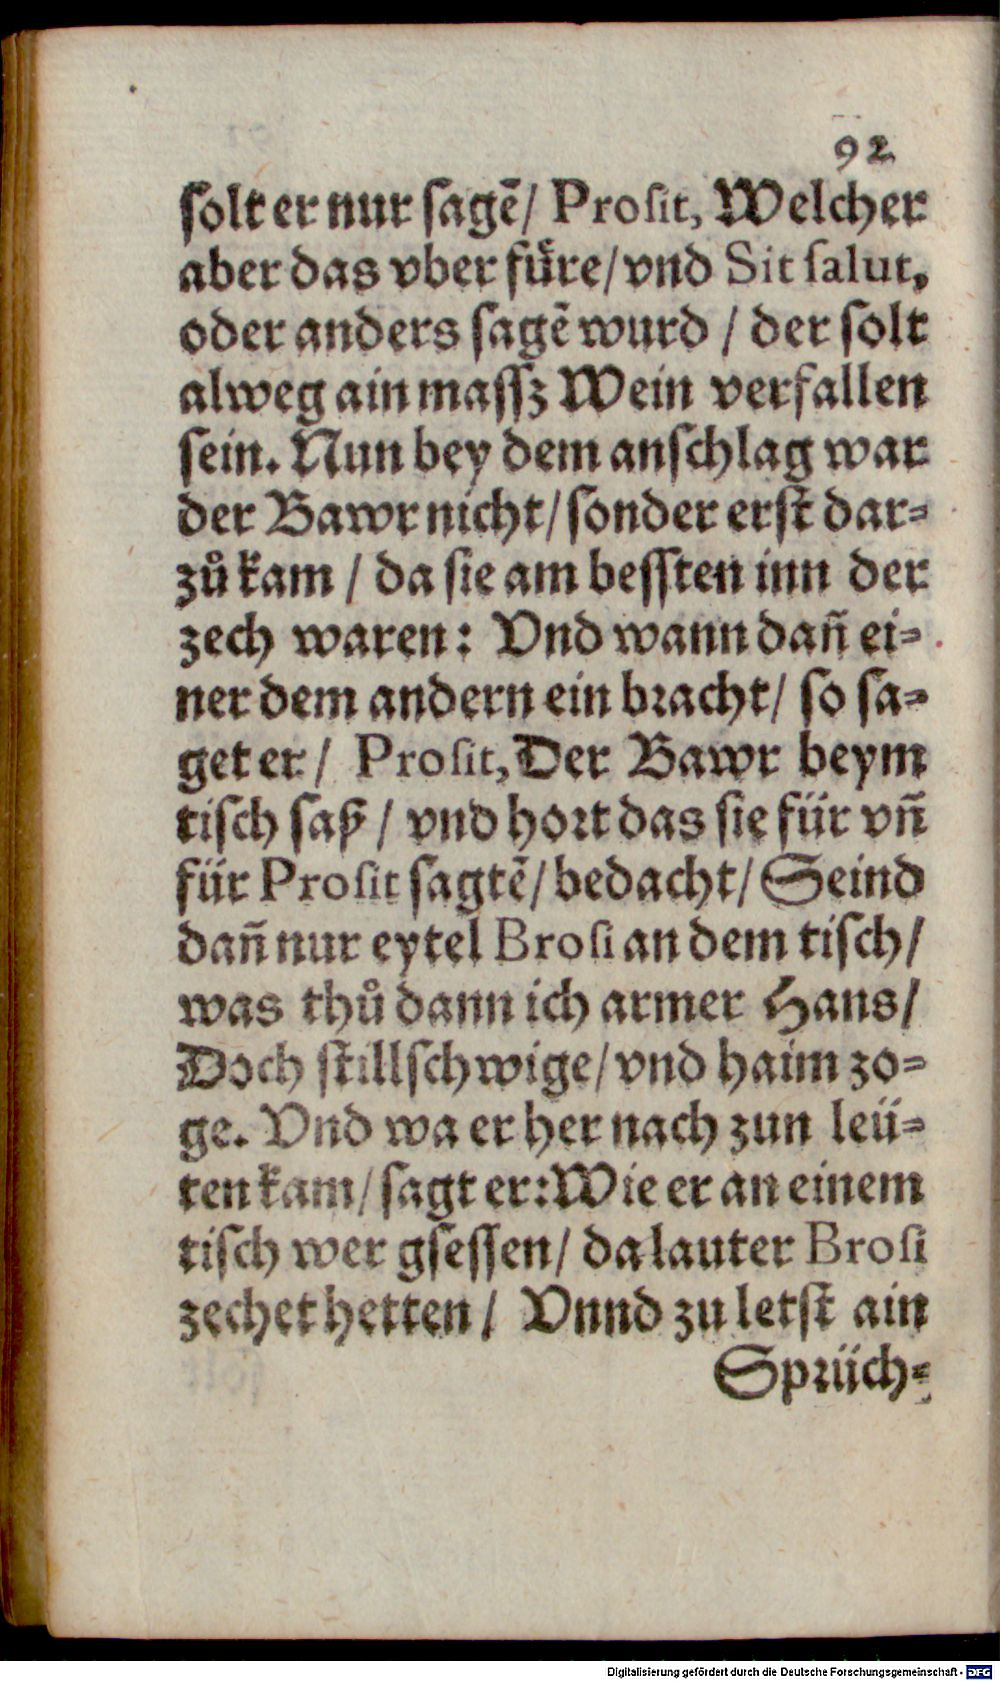 92
solt er nur sagẽ/ Prosit, Welcher
aber das vber fůre/ vnd Sit salut,
oder anders sagẽ wurd / der solt
alweg ain massz Wein verfallen
sein. Nun bey dem anschlag war
der Bawr nicht/ sonder erst dar⸗
zů kam / da sie am bessten inn der
zech waren: Vnd wann dañ ei⸗
ner dem andern ein bracht/ so sa⸗
get er / Prosit, Der Bawr beym
tisch saß / vnd hort das sie für vñ
für Prosit sagtẽ/ bedacht/ Seind
dañ nur eytel Brosi an dem tisch/
was thů dann ich armer Hans/
Doch stillschwige/ vnd haim zo⸗
ge. Vnd wa er her nach zun leü⸗
ten kam/ sagt er: Wie er an einem
tisch wer gsessen/ da lauter Brosi
zechet hetten / Vnnd zu letst ain
Sprüch⸗
Digitalisierung gefördert durch die Deutsche Forschungsgemeinschaft - DFG